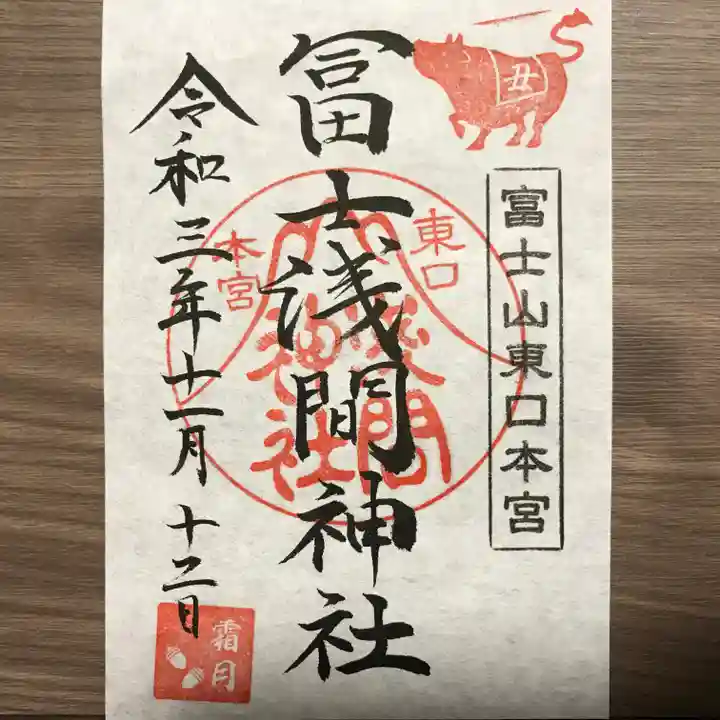 丑
富士山東口本宮
冨士浅間神社
東口
本宮
浅間
神社
令和三年十一月十二日
霜月